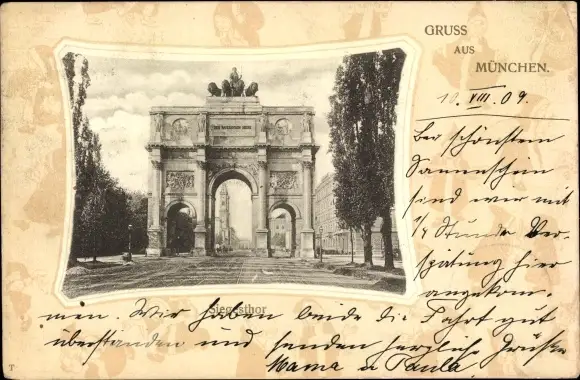 GRUSS
AUS
MÜNCHEN.
10. VIII. 09.
Bei schönstem
Sonnenschein
sind wir mit
1/4 Stunde Ver-
spätung hier
angekom-
men. Wir haben beide die Fahrt gut
überstanden und senden herzliche Grüsse
Mama u Paula
Siegesthor
T